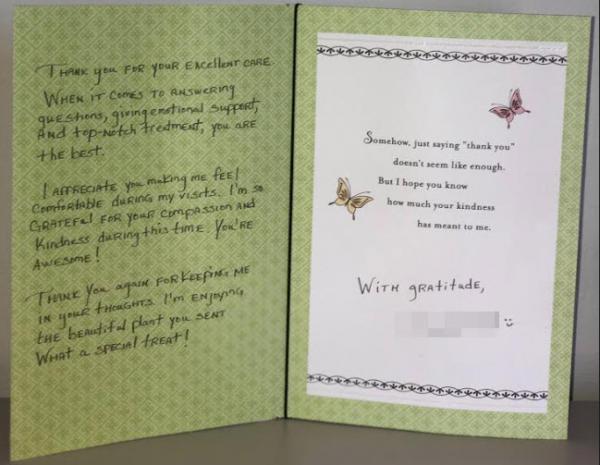 Thank you for your excellent care.
When it comes to answering
questions, giving emotional support,
and top-notch treatment, you are
the best.
I appreciate you making me feel
comfortable during my visits. I'm so
grateful for your compassion and
kindness during this time. You're
awesome!
Thank you again for keeping me
in your thoughts. I'm enjoying
the beautiful plant you sent
What a special treat!
Somehow, just saying "thank you"
doesn't seem like enough.
But I hope you know
how much your kindness
has meant to me.
With gratitude,